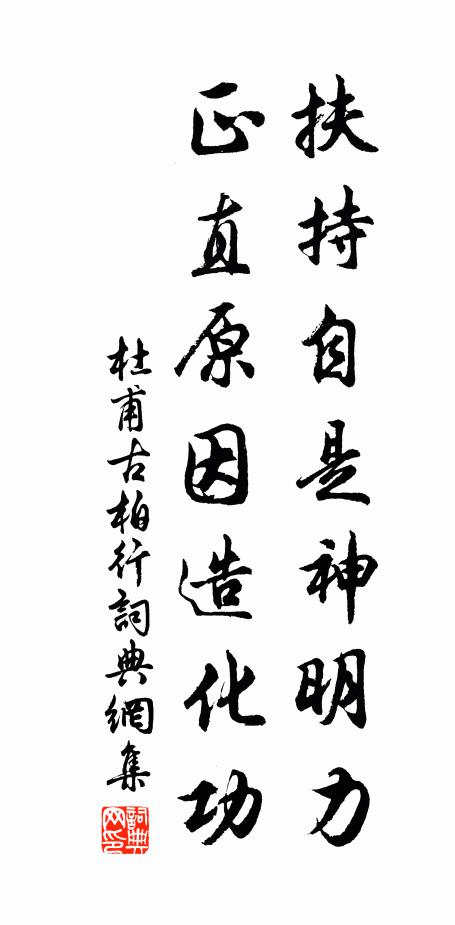 扶持自是神明力
正直原因造化功
杜甫古柏行詞典網集
詞典
网印